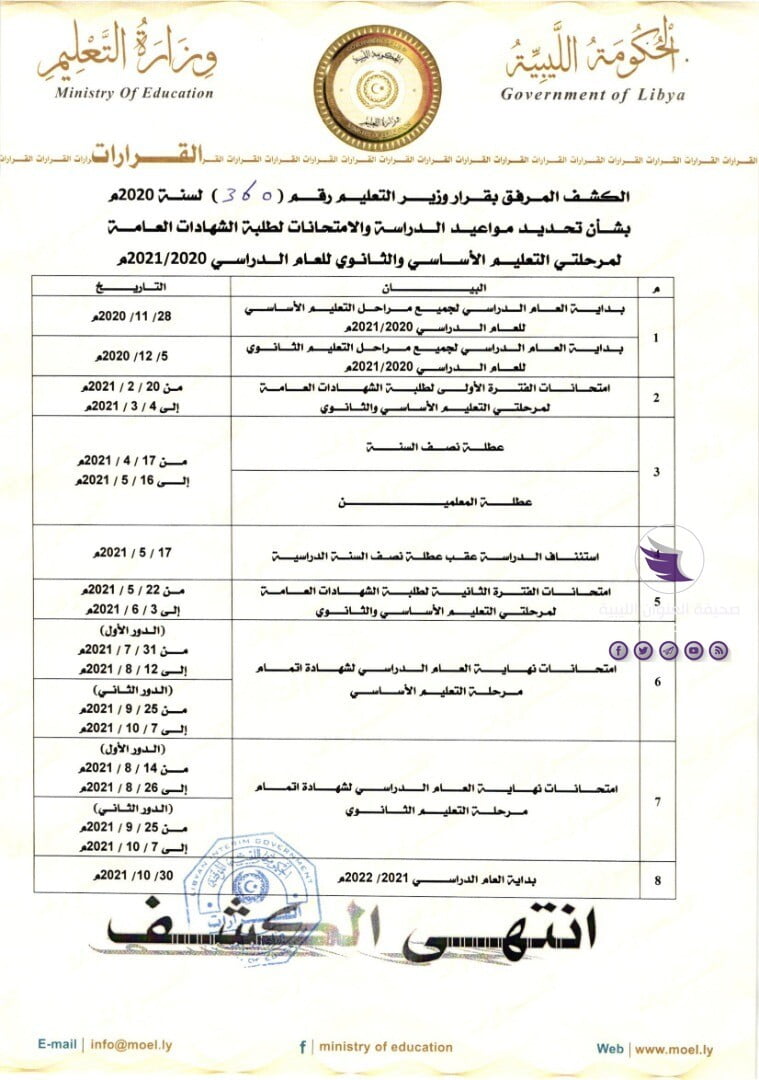 وزارة التعليم
Ministry Of Education
الحكومة الليبية
Government of Libya
الحكومة الليبية
وزارة التعليم
القرارات القرارات القرارات القرارات القرارات القرارات القرارات القرارات القرارات القرارات القرارات القرارات القرارات القرارات القرارات
الكشف المرفق بقرار وزير التعليم رقم (360) لسنة 2020م
بشأن تحديد مواعيد الدراسة والامتحانات لطلبة الشهادات العامة
لمرحلتي التعليم الأساسي والثانوي للعام الدراسي 2021/2020م
م البيان التاريخ
1
بداية العام الدراسي لجميع مراحل التعليم الأساسي
للعام الدراسي 2021/2020م
28/ 11/ 2020م
بداية العام الدراسي لجميع مراحل التعليم الثانوي
للعام الدراسي 2021/2020م
5/ 12/ 2020م
2
امتحانات الفترة الأولى لطلبة الشهادات العامة
لمرحلتي التعليم الأساسي والثانوي
من 20 / 2 / 2021م
إلى 4 / 3 / 2021م
3
عطلة نصف السنة
عطلة المعلمين
من 17 / 4 / 2021م
إلى 16 / 5 / 2021م
4
استئناف الدراسة عقب عطلة نصف السنة الدراسية
17 / 5 / 2021م
5
امتحانات الفترة الثانية لطلبة الشهادات العامة
لمرحلتي التعليم الأساسي والثانوي
من 22 / 5 / 2021م
إلى 3 / 6 / 2021م
6
امتحانات نهاية العام الدراسي لشهادة اتمام
مرحلة التعليم الأساسي
(الدور الأول)
من 31 / 7 / 2021م
إلى 12 / 8 / 2021م
(الدور الثاني)
من 25 / 9 / 2021م
إلى 7 / 10 / 2021م
7
امتحانات نهاية العام الدراسي لشهادة اتمام
مرحلة التعليم الثانوي
(الدور الأول)
من 14 / 8 / 2021م
إلى 26 / 8 / 2021م
(الدور الثاني)
من 25 / 9 / 2021م
إلى 7 / 10 / 2021م
8
بداية العام الدراسي 2021/ 2022م
30/ 10/ 2021م
صحيفة العنوان الليبية
LIBYAN INTERIM GOVERNMENT
القرارات
انتهى الكشف
E-mail | info@moel.ly
f | ministry of education
Web | www.moel.ly